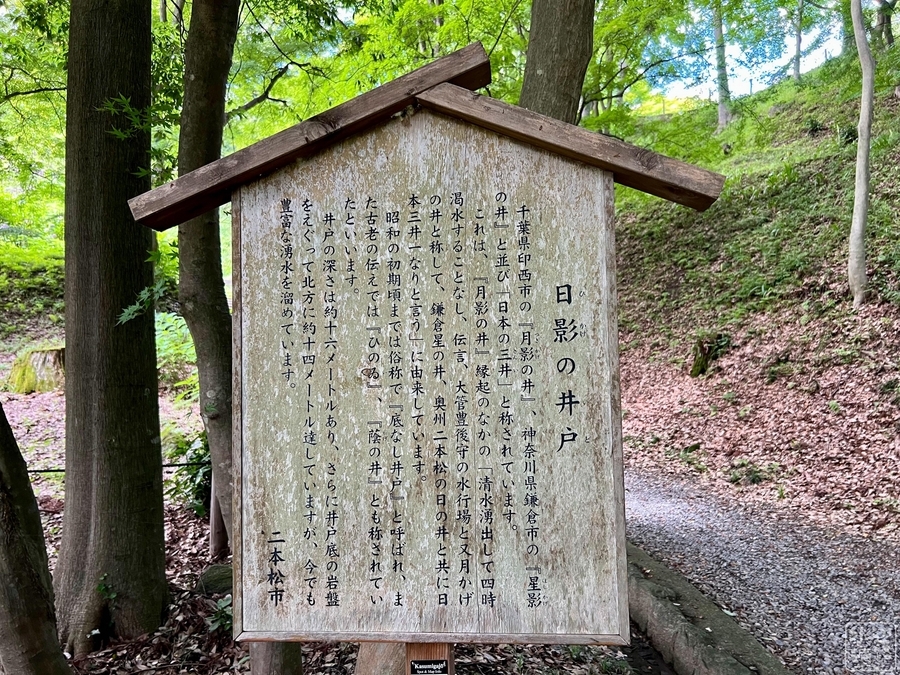 日影の井戸
千葉県印西市の『月影の井』、神奈川県鎌倉市の『星影
の井』と並び「日本の三井」と称されています。
これは、『月影の井』縁起のなかの「清水湧出して四時
渇水することなし、伝言、大管豊後守の水行場と又月かげ
の井と称して、鎌倉星の井、奥州二本松の日の井と共に日
本三井一なりと言う」に由来しています。
昭和の初期頃までは俗称で『底なし井戸』と呼ばれ、ま
た古老の伝えでは『ひのゐ』、『蔭の井』とも称されてい
たといいます。
井戸の深さは約十六メートルあり、さらに井戸底の岩盤
をえぐって北方に約十四メートル達していますが、今でも
豊富な湧水を溜めています。
二本松市
Kasumigajo